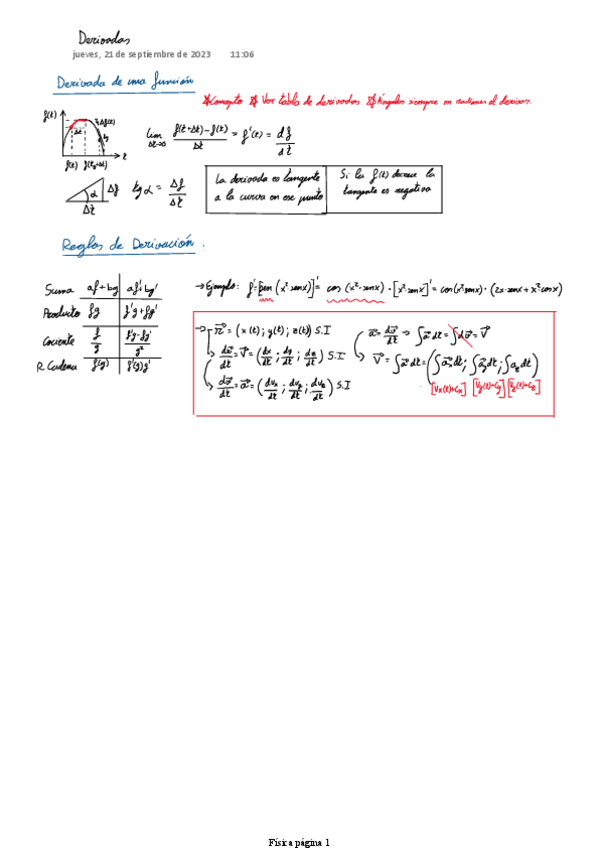 Derivadas
jueves, 21 de septiembre de 2023 11:06
Derivada de una función
Concepto Ver tabla de derivadas Ángulos siempre en radianes al derivar.
f(t) Δf(t) Δt t
f(t) f(t₀+Δt)
lim Δt→0 (f(t+Δt)-f(t))/Δt = f'(t) = df/dt
α Δf Δt tg α = Δf/Δt
La derivada es tangente a la curva en ese punto
Si la f(t) decrece la tangente es negativa
Reglas de Derivación:
Suma af+bg af'+bg'
Producto fg f'g+fg'
Cociente f/g (f'g-fg')/g²
R. Cadena f(g) f'(g)g'
→Ejemplo: f'=[sen(x²·senx)]' = cos(x²·senx)·[x²·senx]' = cos(x²senx)·(2x·senx+x²cosx)
→ r⃗ = (x(t); y(t); z(t)) S.I
dr⃗/dt = v⃗ = (dx/dt; dy/dt; dz/dt) S.I
dv⃗/dt = a⃗ = (dvx/dt; dvy/dt; dvz/dt) S.I
a⃗ = dv⃗/dt → ∫a⃗ dt = ∫dv⃗ = v⃗
v⃗ = ∫a⃗ dt = (∫ax dt; ∫ay dt; ∫az dt)
[Vx(t)+Cx] [Vy(t)+Cy] [Vz(t)+Cz]
Física página 1